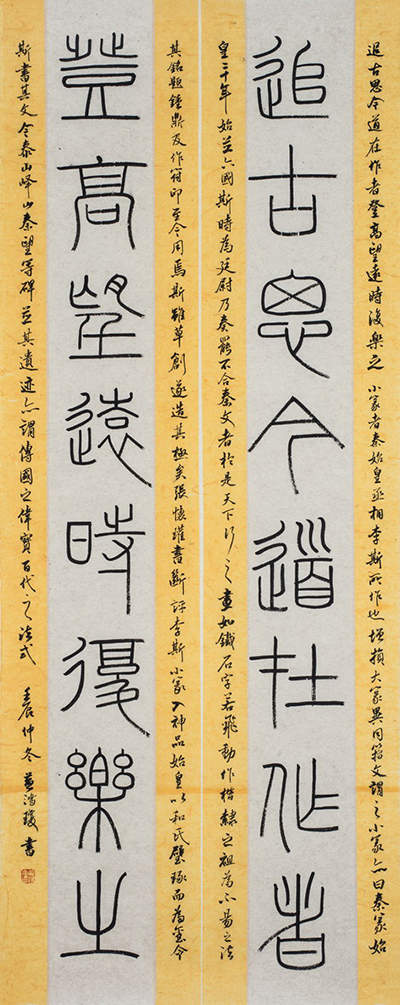 追古思今道在作者登高望遠時復樂之 小篆者秦始皇丞相李斯所作也增損大篆異同籀文謂之小篆亦曰秦篆始
追古思今道在作者
皇二十年始並六國斯時為廷尉乃奏罷不合秦文者於是天下行之畫如鐵石字若飛動作楷隸之祖為不易之法
其銘題鐘鼎及作符印至今用焉斯雖草創遂造其極矣張懷瓘書斷評李斯小篆入神品始皇以和氏璧琢而為璽令
登高望遠時復樂之
斯書其文今泰山嶧山秦望等碑並其遺迹亦謂傳國之偉寶百代之法式 壬辰仲冬 書